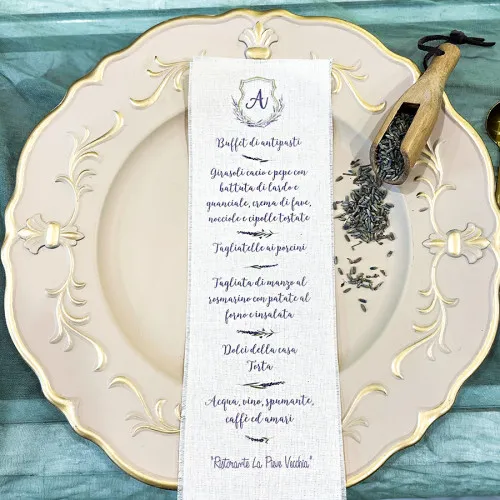 A
Buffet di antipasti
Girasoli cacio e pepe con
battuta di lardo e
guanciale, crema di fave,
nocciole e cipolle tostate
Tagliatelle ai porcini
Tagliata di manzo al
rosmarino con patate al
forno e insalata
Dolci della casa
Torta
Acqua, vino, spumante,
caffè ed amari
"Ristorante La Pieve Vecchia"